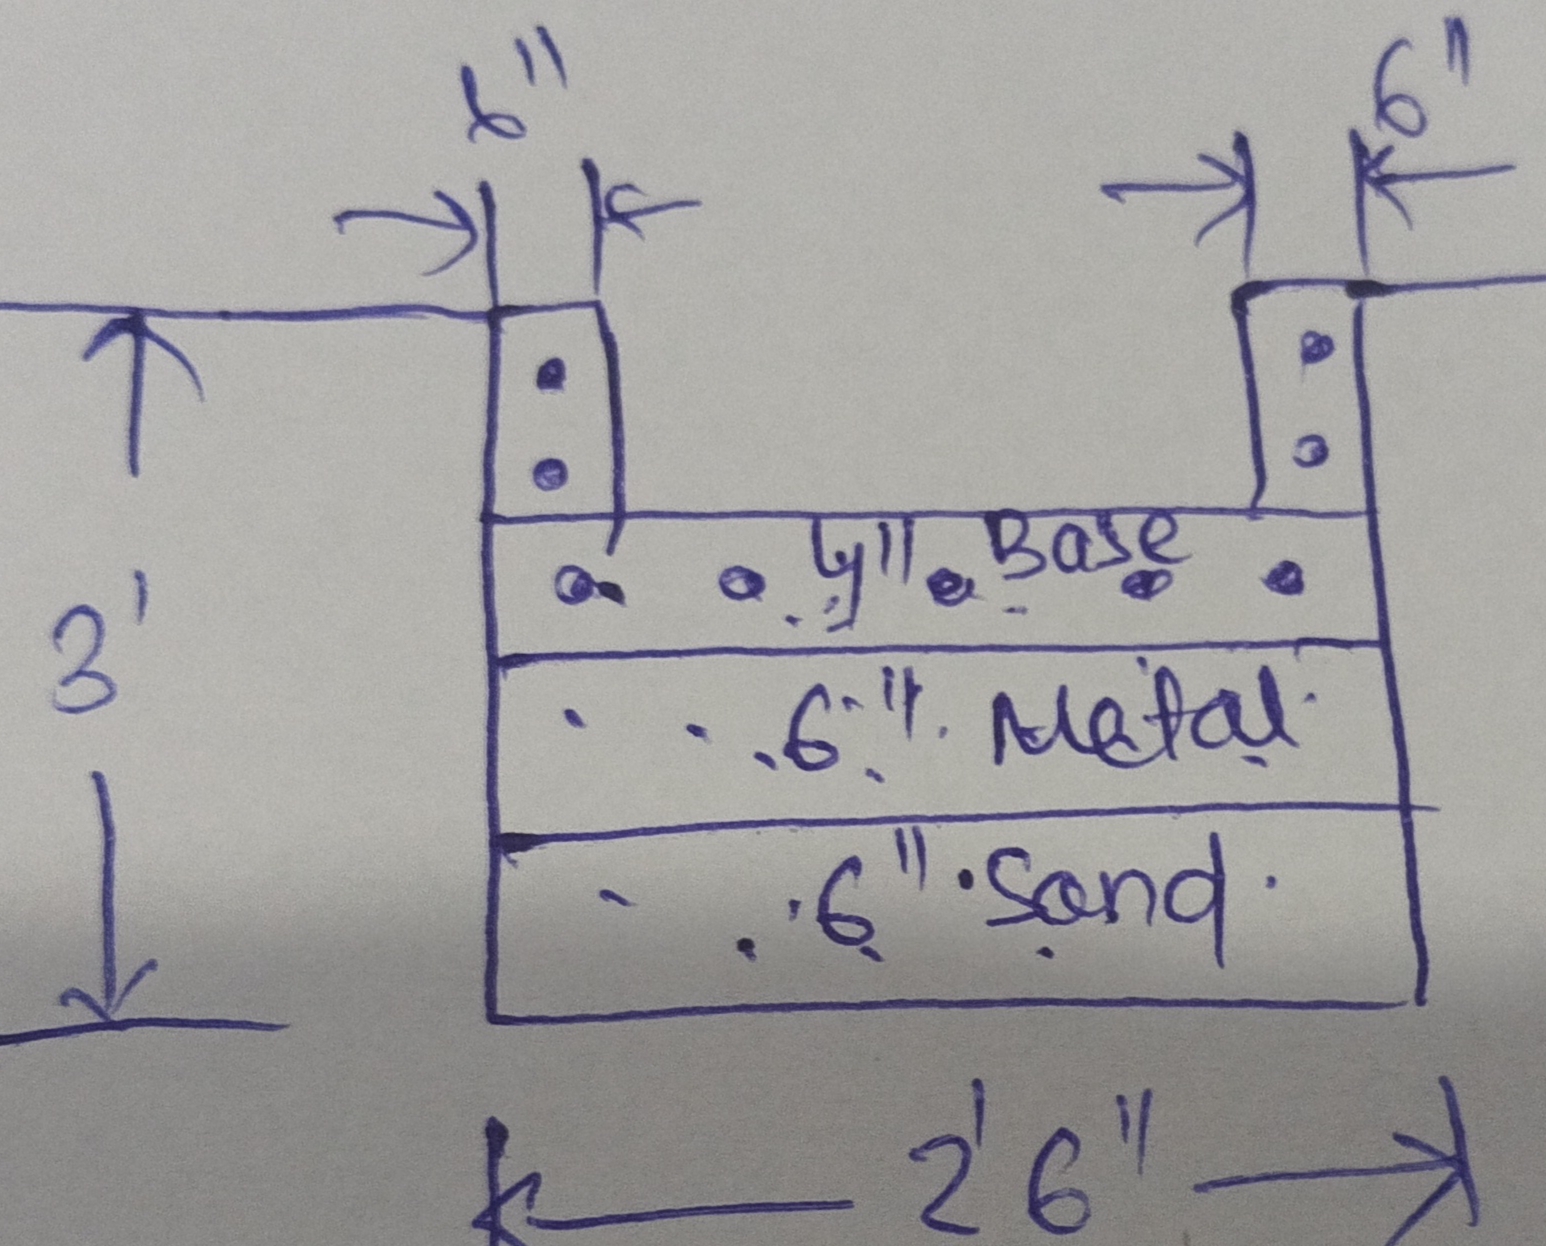 6"
6"
3'
4" Base
6" Metal
6" Sand
2'6"